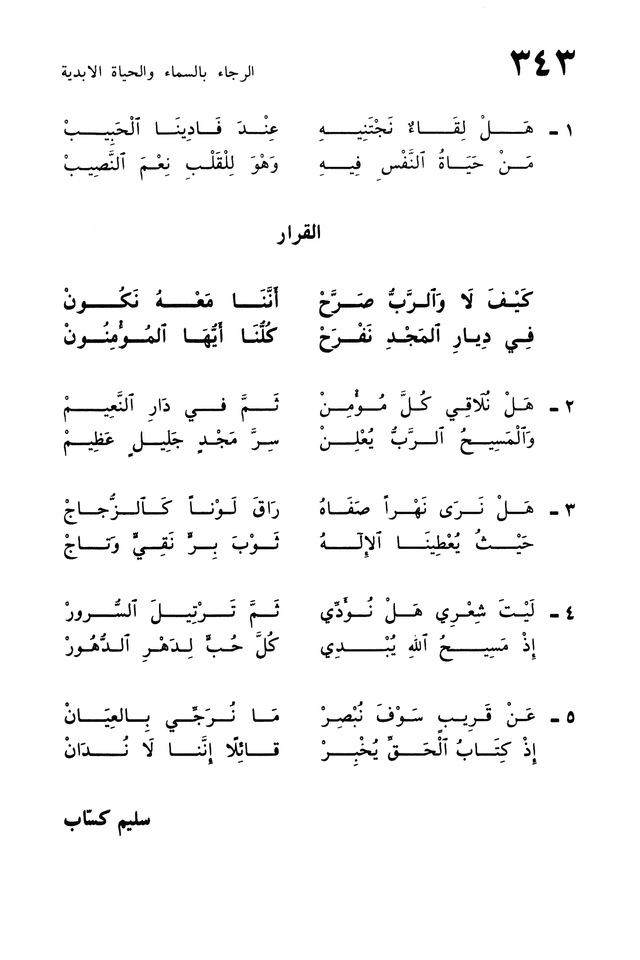 ٣٤٣
الرجاء بالسماء والحياة الابدية
١ - هَلْ لِقَاءٌ نَجْتَنِيهِ عِنْدَ فَادِينَا ٱلْحَبِيبْ
مَنْ حَيَاةُ ٱلنَّفْسِ فِيهِ وَهْوَ لِلْقَلْبِ نِعْمَ ٱلنَّصِيبْ
القرار
كَيْفَ لَا وَٱلرَّبُّ صَرَّحْ أَنَّنَا مَعْهُ نَكُونْ
فِي دِيَارِ ٱلمَجْدِ نَفْرَحْ كُلُّنَا أَيُّهَا ٱلمُؤْمِنُونْ
٢ - هَلْ نُلَاقِي كُلَّ مُؤْمِنْ ثَمَّ فِي دَارِ ٱلنَّعِيمْ
وَٱلْمَسِيحُ ٱلرَّبُّ يُعْلِنْ سِرَّ مَجْدٍ جَلِيلٍ عَظِيمْ
٣ - هَلْ نَرَى نَهْراً صَفَاهُ رَاقَ لَوْناً كَٱلزُّجَاجْ
حَيْثُ يُعْطِينَا ٱلإِلٰهُ ثَوْبَ بِرٍّ نَقِيٍّ وَتَاجْ
٤ - لَيْتَ شِعْرِي هَلْ نُؤَدِّي ثَمَّ تَرْتِيلَ ٱلسُّرورْ
إِذْ مَسِيحُ ٱللهِ يُبْدِي كُلَّ حُبٍّ لِدَهْرِ ٱلدُّهُورْ
٥ - عَنْ قَرِيبٍ سَوْفَ نُبْصِرْ مَا نُرَجِّي بِٱلعِيَانْ
إِذْ كِتَابُ ٱلْحَقِّ يُخْبِرْ قَائِلًا إِنَّنا لَا نُدَانْ
سليم كسّاب